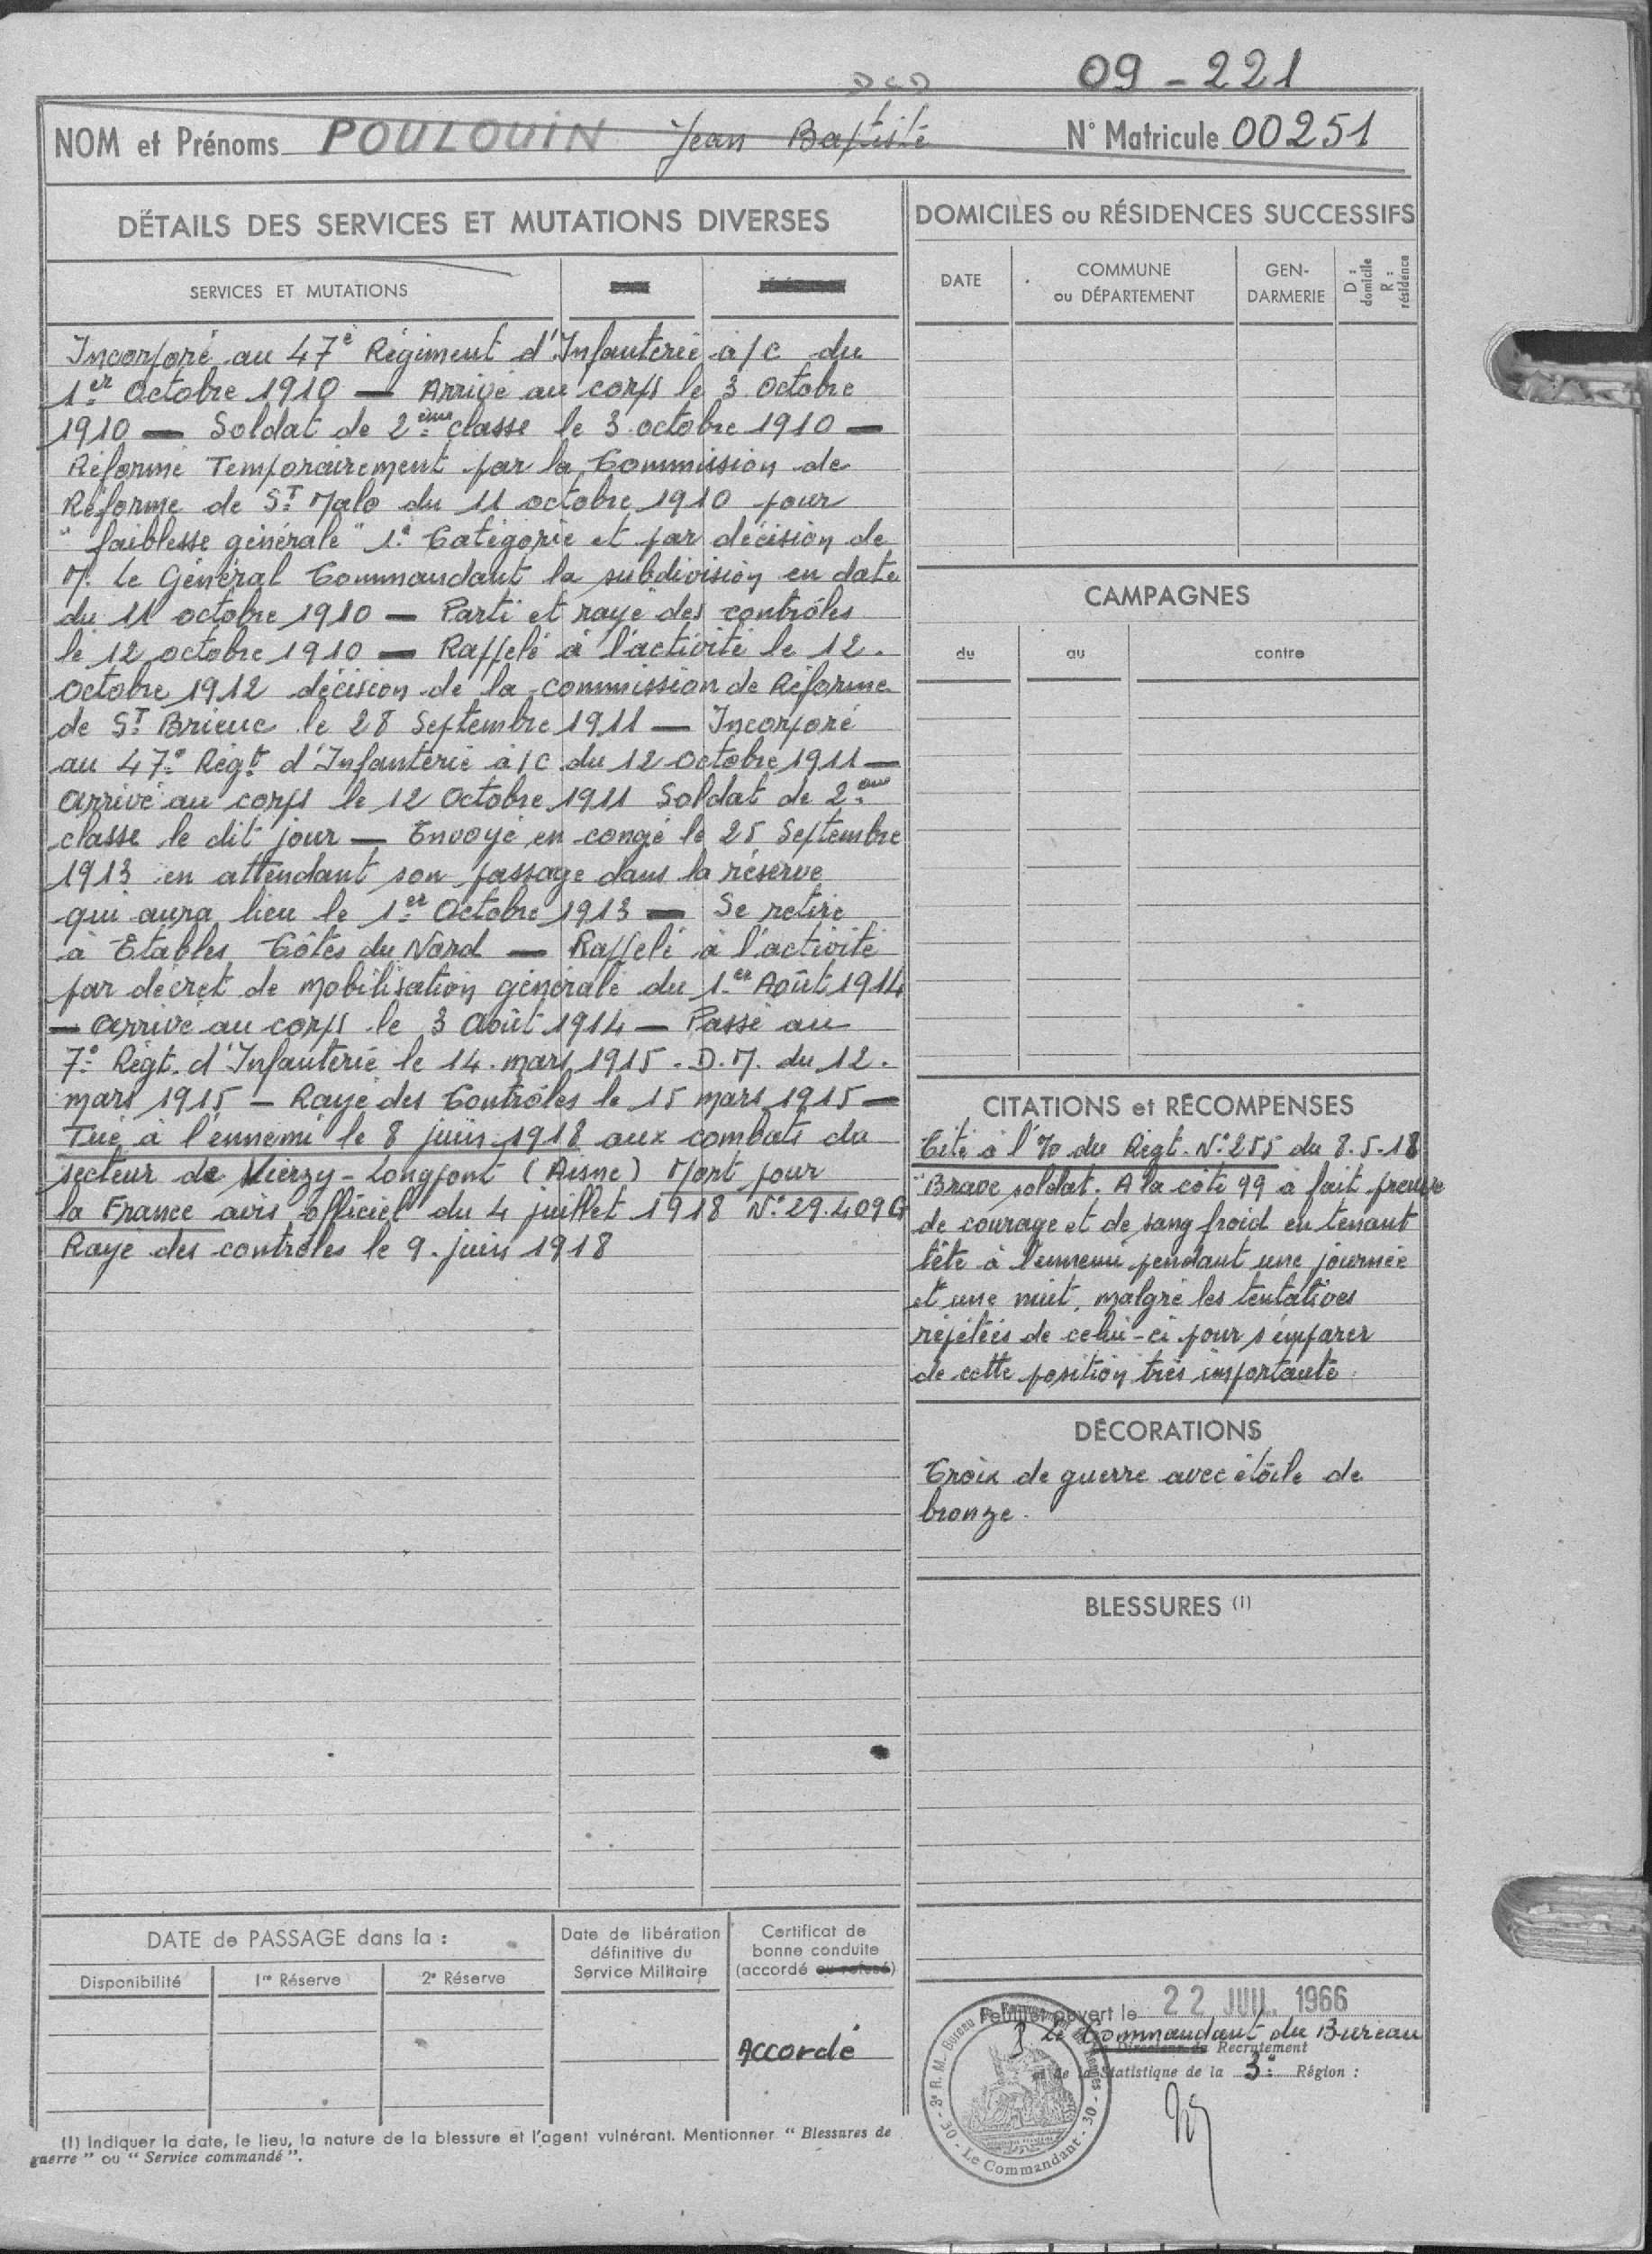 DCD
09 - 221
NOM et Prénoms POULOUIN Jean Baptiste
N° Matricule 00251
DÉTAILS DES SERVICES ET MUTATIONS DIVERSES
SERVICES ET MUTATIONS
Incorporé au 47è Régiment d'Infanterie à/c du
1er Octobre 1910 — Arrivé au corps le 3 Octobre
1910 — Soldat de 2ème classe le 3 octobre 1910 —
Réformé Temporairement par la Commission de
Réforme de St Malo du 11 octobre 1910 pour
"faiblesse générale" 1è Catégorie et par décision de
M. le Général Commandant la subdivision en date
du 11 octobre 1910 — Parti et rayé des contrôles
le 12 octobre 1910 — Rappelé à l'activité le 12.
octobre 1912 décision de la commission de Réforme
de St Brieuc le 28 Septembre 1911 — Incorporé
au 47e Régt d'Infanterie à/c du 12 Octobre 1911 —
Arrivé au corps le 12 Octobre 1911 Soldat de 2ème
classe le dit jour — Envoyé en congé le 25 Septembre
1913 en attendant son passage dans la réserve
qui aura lieu le 1er Octobre 1913 — Se retire
à Etables Côtes du Nord — Rappelé à l'activité
par décret de mobilisation générale du 1er Août 1914
— Arrivé au corps le 3 Août 1914 — Passé au
7e Régt. d'Infanterie le 14 mars 1915 - D.M. du 12.
mars 1915 — Rayé des Contrôles le 15 mars 1915 —
Tué à l'ennemi le 8 juin 1918 aux combats du
secteur de Vierzy - Longpont (Aisne) Mort pour
la France avis officiel du 4 juillet 1918 N° 29.409 G
Rayé des contrôles le 9 juin 1918
DATE de PASSAGE dans la :
Disponibilité
1re Réserve
2e Réserve
Date de libération
définitive du
Service Militaire
Certificat de
bonne conduite
(accordé ou refusé)
Accordé
(1) Indiquer la date, le lieu, la nature de la blessure et l'agent vulnérant. Mentionner " Blessures de
guerre " ou " Service commandé ".
DOMICILES ou RÉSIDENCES SUCCESSIFS
DATE
COMMUNE
ou DÉPARTEMENT
GEN-
DARMERIE
D :
domicile
R :
résidence
CAMPAGNES
du
au
contre
CITATIONS et RÉCOMPENSES
Cité à l'% du Régt. N° 255 du 8.5.18
"Brave soldat. A la côte 99 à fait preuve
de courage et de sang froid en tenant
tête à l'ennemi pendant une journée
et une nuit, malgré les tentatives
répétées de celui-ci pour s'emparer
de cette position très importante.
DÉCORATIONS
Croix de guerre avec étoile de
bronze.
BLESSURES (1)
Feuillet ouvert le 22 JUIL. 1966
P Le Commandant du Bureau
Le Directeur du Recrutement
et de la Statistique de la 3e Région :
3e R. M. - Bureau de Recrutement de Rennes - 30 - Le Commandant - 30